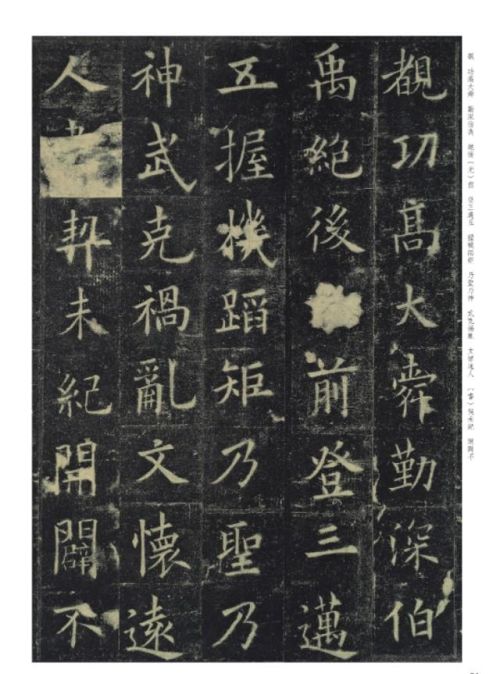 覩功高大舜勤深伯
禹絕後前登三邁
五握機蹈矩乃聖乃
神武克禍亂文懷遠
人契未紀開闢不
覩 功高大舜 勤深伯禹 絕後(光)前 登三邁五 握機蹈矩 乃聖乃神 武克禍亂 文懷遠人 (書)契未紀 開闢不